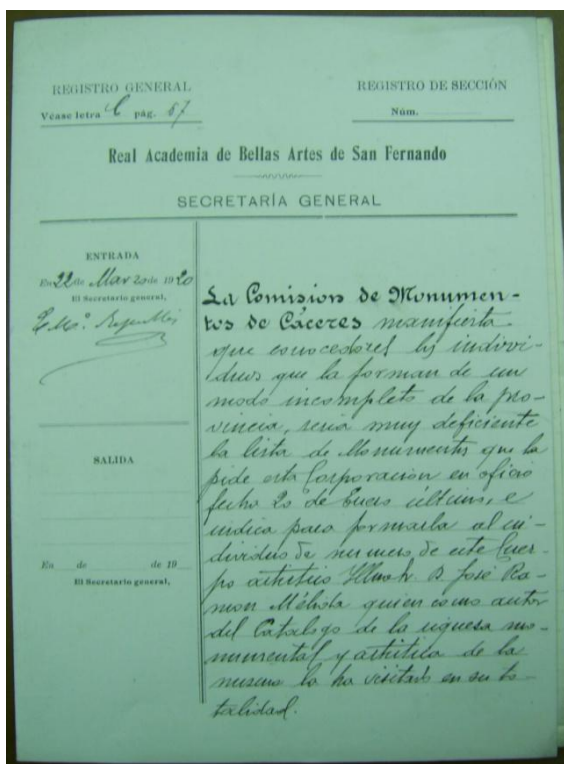 REGISTRO GENERAL
Véase letra C pág. 57
REGISTRO DE SECCIÓN
Núm.
Real Academia de Bellas Artes de San Fernando
SECRETARÍA GENERAL
ENTRADA
En 22 de Marzo de 1920
El Secretario general,
SALIDA
En de de 19
El Secretario general,
La Comision de Monumen-
tos de Cáceres manifiesta
que conocedores los indivi-
duos que la forman de un
modo incompleto de la pro-
vincia, seria muy deficiente
la lista de Monumentos que la
pide esta Corporacion en oficio
fecha 20 de Enero último, e
indica para formarla al in-
dividuo de numero de este Cuer-
po artistico Illmo Sr. D. José Ra-
mon Mélida quien como autor
del Catalogo de la riqueza mo-
numental y artistica de la
misma la ha visitado en su to-
talidad.